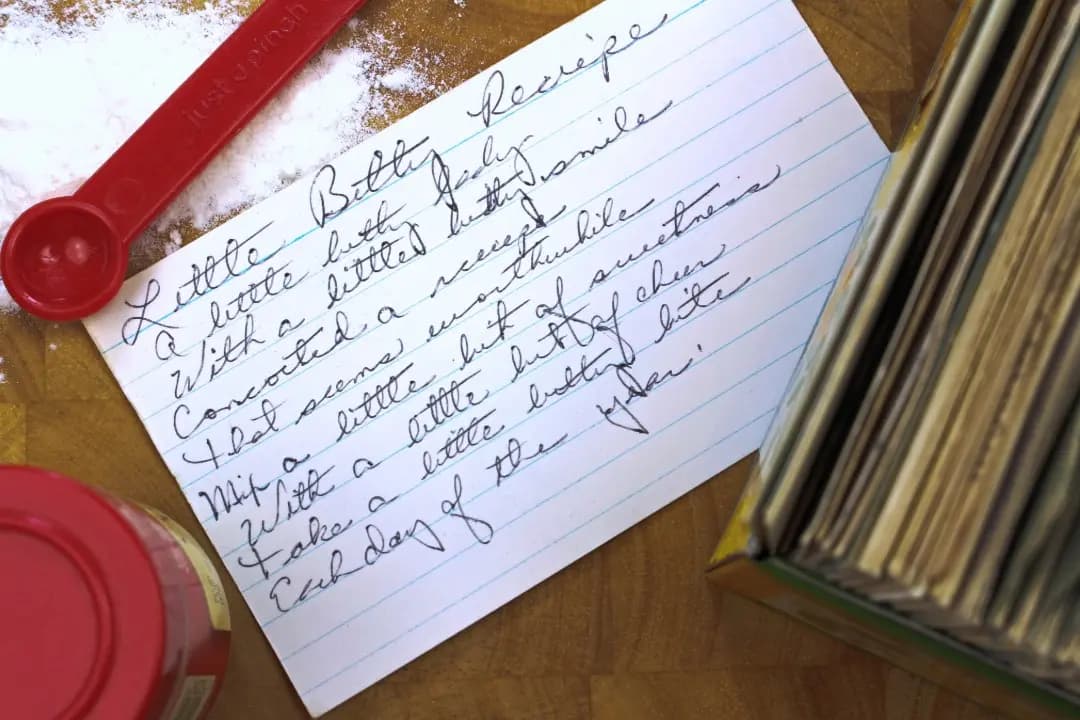 just a pinch
Little Bitty Recipe
A little bitty lady
With a little bitty smile
Concocted a recipe
That seems worthwhile
Mix a little bit of sweetness
With a little bit of cheer
Take a little bitty bite
Each day of the year.